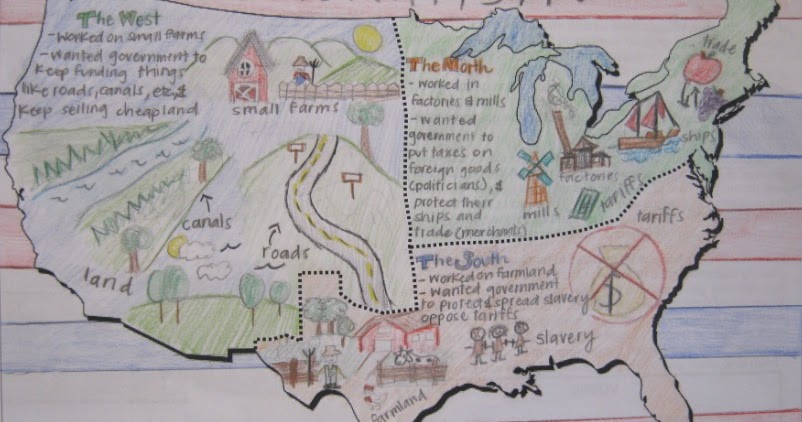 The West
- worked on small farms
- wanted government to
keep funding things
like roads, canals, etc, &
keep selling cheap land
small farms
canals
roads
land
The North
- worked in
factories & mills
- wanted
government to
put taxes on
foreign goods
(politicians), &
protect their
ships and
trade (merchants)
trade
ships
factories
mills
tariffs
tariffs
The South
- worked on farmland
- wanted government
to protect & spread slavery
oppose tariffs
$
slavery
farmland